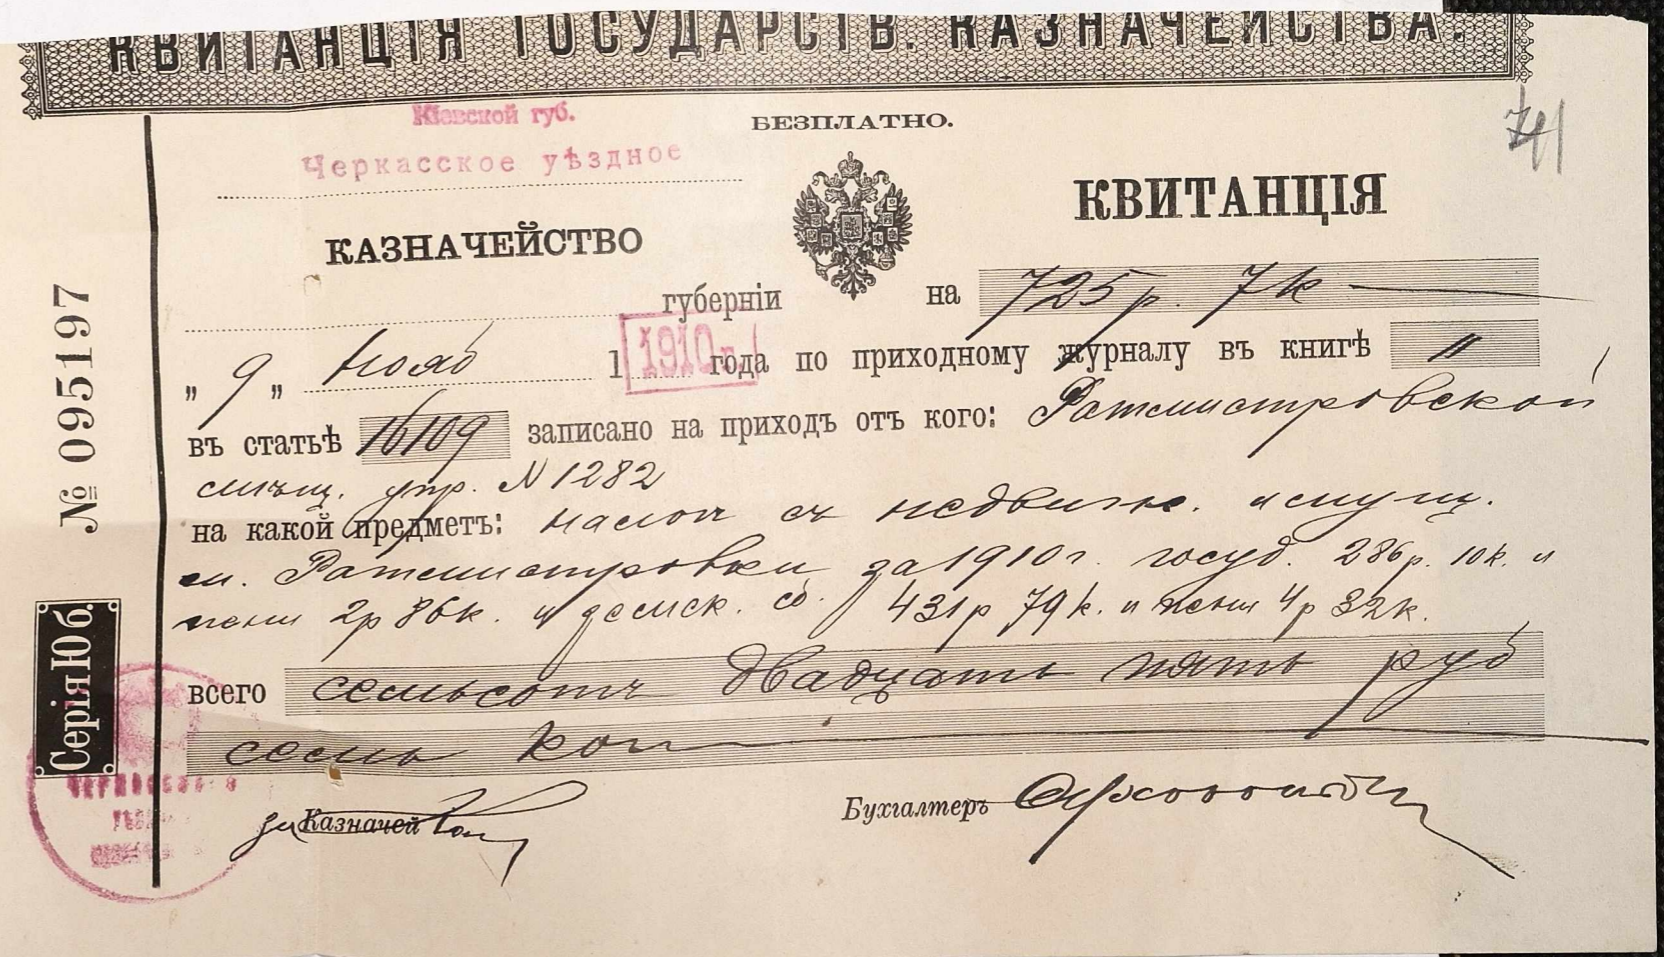 КВИТАНЦІЯ ГОСУДАРСТВ. КАЗНАЧЕЙСТВА.
741
Кіевской губ.
БЕЗПЛАТНО.
Черкасское уѣздное
КАЗНАЧЕЙСТВО
КВИТАНЦІЯ
губерніи
на 725 р. 7 к
„ 9 „ нояб 1 1910 г. года по приходному журналу въ книгѣ 11
въ статьѣ 16109 записано на приходъ отъ кого: Ратмистровской
мѣщ. упр. N 1282
на какой предметъ: налогъ съ недвиж. имущ.
м. Ратмистровки за 1910 г. госуд. 286 р. 10 к. и
пени 2 р 86 к. и земск. сб. 431 р 79 к. и пени 4 р 32 к.
всего семьсотъ двадцать пять руб
семь коп
Казначей
Бухгалтеръ
№ 095197
Серія Юб.